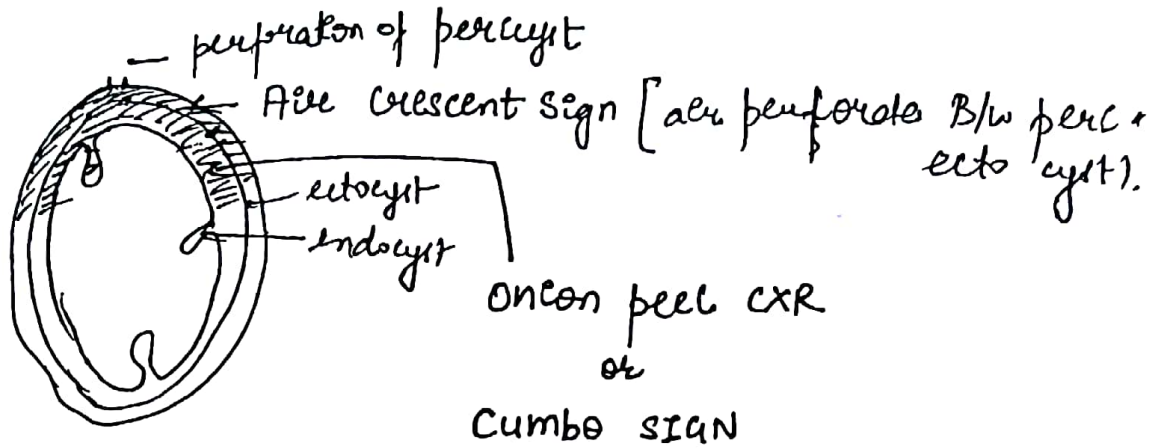 perfraton of pericyst
Air Crescent Sign [aer perforates B/w peric +
ecto cyst).
ectocyst
endocyst
Onion peel CXR
or
Cumbo SIGN